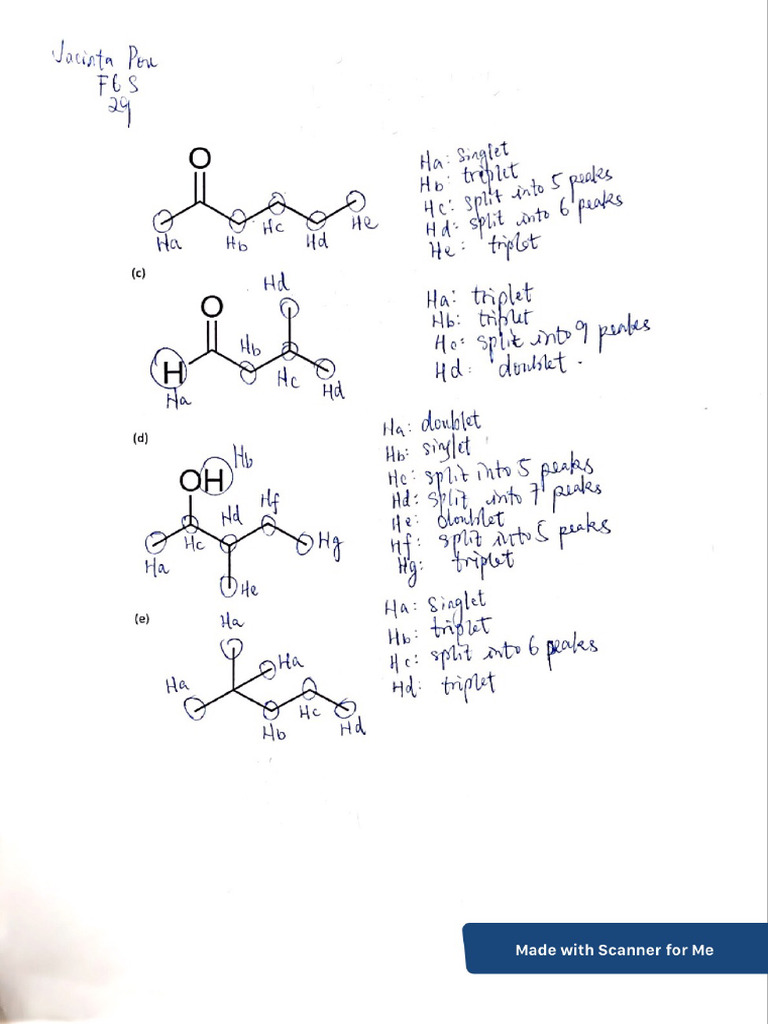 Jacinta
F6S
29
O
Ha
Hb
Hc
Hd
He
Ha: Singlet
Hb: triplet
Hc: split into 5 peaks
Hd: split into 6 peaks
He: triplet
(c)
Hd
O
Hb
H
Ha
Hc
Hd
Ha: triplet
Hb: triplet
Hc: split into 9 peaks
Hd: doublet.
(d)
Hb
OH
Hf
Hd
Ha
Hc
Hg
He
Ha: doublet
Hb: singlet
Hc: split into 5 peaks
Hd: split into 7 peaks
He: doublet
Hf: split into 5 peaks
Hg: triplet
(e)
Ha
Ha
Ha
Hc
Hb
Hd
Ha: Singlet
Hb: triplet
Hc: split into 6 peaks
Hd: triplet
Made with Scanner for Me